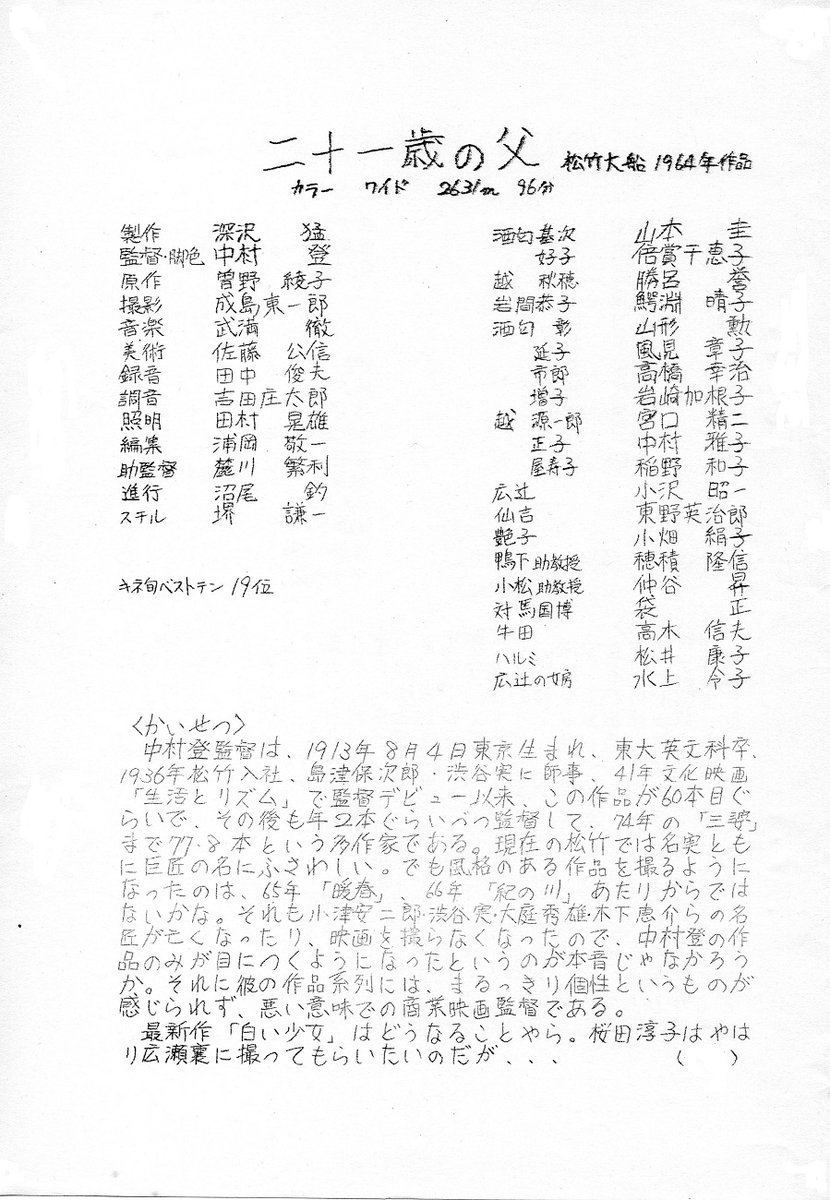 二十一歳の父 松竹大船 1964年作品
カラー ワイド 2631m 96分
製作 深沢 猛
監督・脚色 中村 登
原作 曽野 綾子
撮影 成島東一郎
音楽 武満 徹
美術 佐藤 公信
録音 田中 俊夫
調音 吉田庄太郎
照明 田村 晃雄
編集 浦岡 敬一
助監督 麓川 繁利
進行 沼尾 釣
スチル 堺 謙一
キネ旬ベストテン 19位
酒匂基次 山本 圭
好子 倍賞千恵子
越 秋穂 勝呂 誉
岩間恭子 鰐淵 晴子
酒匂 彰 山形 勲
延子 風見 章子
市郎 高橋 幸治
増子 岩崎加根子
越 源一郎 宮口 精二
正子 中村 雅子
屋寿子 稲野 和子
広辻 小沢 昭一
仙吉 東野英治郎
艶子 小畑 絹子
鴨下助教授 穂積 隆信
小松助教授 仲谷 昇
対馬国博 袋 正
牛田 高木 信夫
ハルミ 松井 康子
広辻の女房 水上 令子
〈かいせつ〉
中村登監督は、1913年8月4日東京生まれ、東大英文科卒、
1936年松竹入社、島津保次郎・渋谷実に師事、41年文化映画
「生活とリズム」で監督デビュー以来、この作品が60本目ぐ
らいで、その後も年2本ぐらいづつ監督して、74年の「三婆」
まで77・8本という多作家である。現在の松竹では名実とも
に巨匠の名にふさわしい。でも風格のある作品を撮るように
なったのは、65年「暖春」、66年「紀の川」あたりからでは
ないかな。それも小津安二郎・渋谷実・大庭秀雄・木下恵介らの名
匠が亡くなったり、映画を撮らなくなったので、中村登の作
品のみが目につくようになったというのが本音じゃなかろう
か。それに彼の作品系列には、まるっきり個性というものが
感じられず、悪い意味での商業映画監督である。
最新作「白い少女」はどうなることやら。桜田淳子はやは
り広瀬襄に撮ってもらいたいのだが、、、 ( )